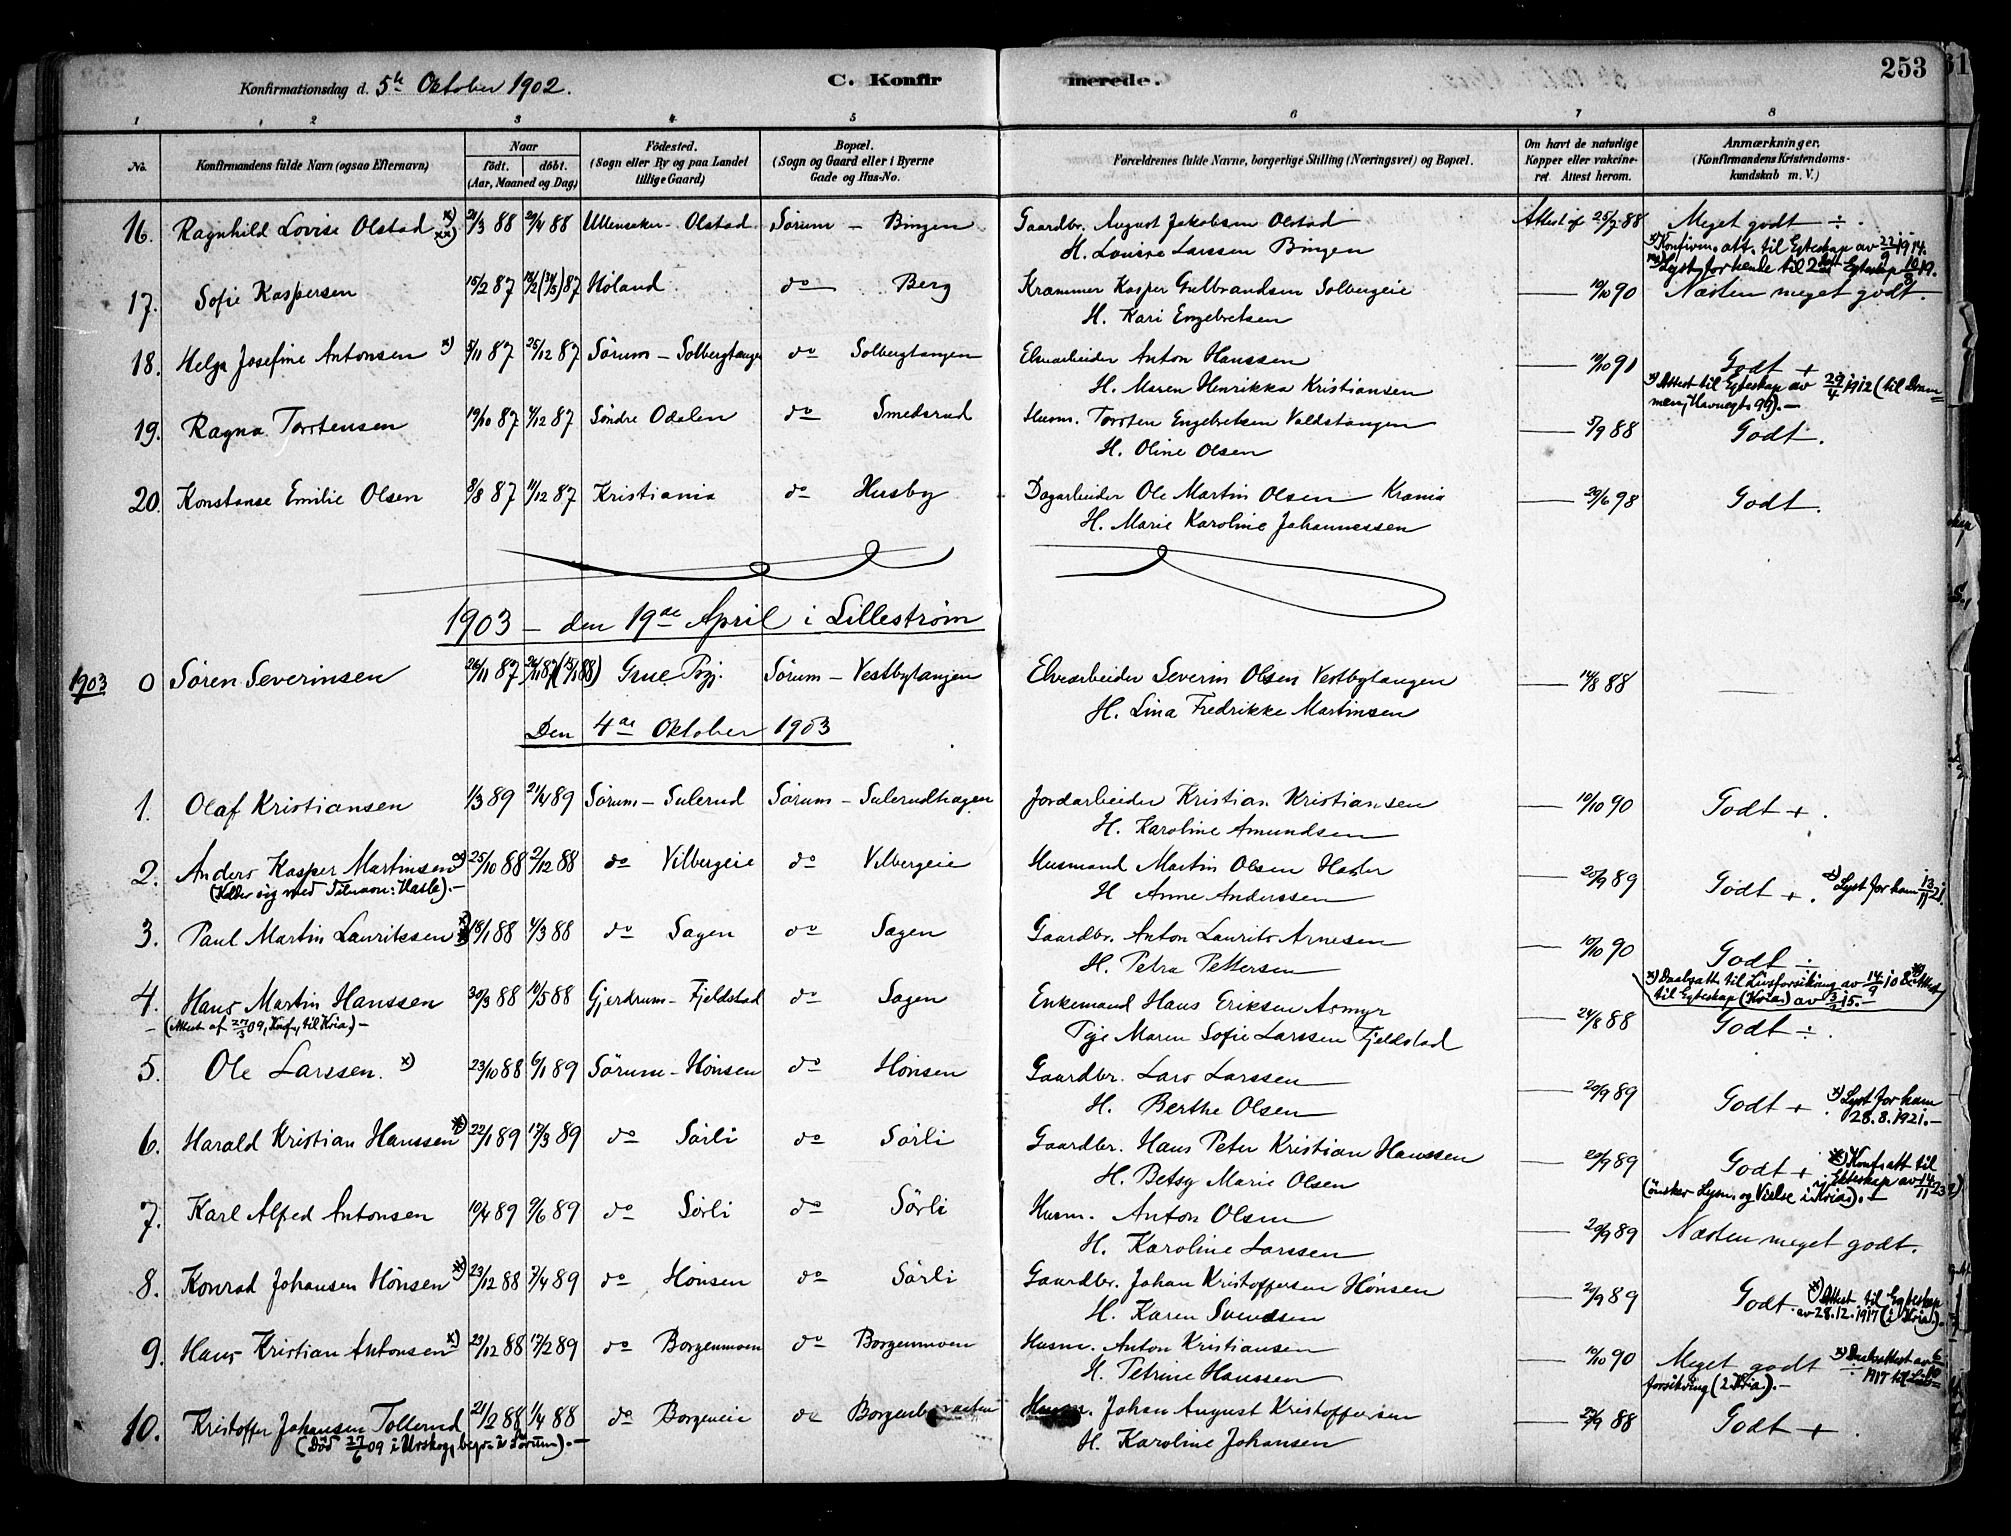 253
Konfirmationsdag d. 5te Oktober 1902.
C. Konfirmerede.
1 2 3 4 5 6 7 8
No. Konfirmandens fulde Navn (ogsaa Efternavn)
Naar født. døbt. (Aar, Maaned og Dag)
Fødested. (Sogn eller By og paa Landet tillige Gaard)
Bopæl. (Sogn og Gaard eller i Byerne Gade og Hus-No.
Forældrenes fulde Navne, borgerlige Stilling (Næringsvei) og Bopæl.
Om havt de naturlige Kopper eller vakcineret. Attest herom.
Anmærkninger, (Konfirmandens Kristendomskundskab m. V.)
16. Ragnhild Lovise Olstad x) xx) 21/3 88 29/4 88 Ullensaker - Olstad Sørum - Bingen Gaardbr. August Jakobsen Olstad Attest af 25/7 88 Meget godt ÷.
H. Lovise Larssen Bingen x) Konfirm. att. til Egteskap av 22/9 1914.
xx) Lyst for hende til 2det Egteskap 10/8 19.
17. Sofie Kaspersen 15/2 87 87 Høland do Berg Kræmmer Kasper Gulbrandsen Solbergeie — 10/10 90 Næsten meget godt.
H. Kari Engebretsen
18. Helga Josefine Antonsen x) 5/11 87 25/12 87 Sørum - Solbergtangen do Solbergtangen Elvearbeider Anton Hanssen — 10/10 91 Godt +
H. Maren Henrikka Kristiansen x) Attest til Egteskap av 29/4 1912 (til Drammen, Havnegt. 99). —
19. Ragna Torstensen 19/10 87 4/12 87 Søndre Odalen do Smedsrud Husm. Torsten Engebretsen Valdstangen — 5/9 88 Godt.
H. Oline Olsen
20. Konstanse Emilie Olsen 8/8 87 11/12 87 Kristiania do Husby Dagarbeider Ole Martin Olsen Krania — 29/6 98 Godt.
H. Marie Karoline Johannessen
1903 - den 19de April i Lillestrøm
1903 0 Søren Severinsen 26/11 87 Grue Pgj. Sørum - Vestbytangen Elvearbeider Severin Olsen Vestbytangen — 14/8 88 —
H. Lina Fredrikke Martinsen
Den 4de Oktober 1903
1. Olaf Kristiansen 1/3 89 21/4 89 Sørum - Sulerud Sørum - Sulerudhagen Jordarbeider Kristian Kristiansen — 10/10 90 Godt +.
H. Karoline Amundsen
2. Anders Kasper Martinsen x) 25/10 88 2/12 88 do Vilbergeie do Vilbergeie Husmand Martin Olsen Hasler — 20/9 89 Godt +. x) Lyst for ham 13/11 21.
(Kalder sig med Tilnavn: Hasle). — H Anne Anderssen
3. Paul Martin Lauritsen x) 18/1 88 4/3 88 do Sagen do Sagen Gaardbr. Anton Laurits Arnesen — 10/10 90 Godt ÷
H. Petra Pettersen x) Daabsatt. til Livsforsikring av 14/9 10 & Attest til Egteskap (Kria) av 3/2 15. —
4. Hans Martin Hanssen 30/3 88 10/5 88 Gjerdrum - Fjeldstad do Sagen Enkemand Hans Eriksen Asmyr — 24/8 88 Godt ÷.
(Attest af 27/3 09, Konf., til Kria) — Pige Maren Sofie Larssen Fjeldstad
5. Ole Larssen. x) 23/10 88 6/1 89 Sørum - Hønsen do Hønsen Gaardbr. Lars Larssen — 20/9 89 Godt + x) Lyst for ham 28.8.1921. —
H. Berthe Olsen
6. Harald Kristian Hanssen x) 22/1 89 17/3 89 do Sørli do Sørli Gaardbr. Hans Peter Kristian Hanssen — 20/9 89 Godt + x) Konf. att til Egteskap av 14/11 23
H. Betsy Marie Olsen (ønsker Lysn. og Vielse i Kria). —
7. Karl Alfred Antonsen 10/4 89 9/6 89 do Sørli do Sørli Husm. Anton Olsen — 20/9 89 Næsten meget godt.
H. Karoline Larssen
8. Konrad Johansen Hønsen x) 23/12 88 7/4 89 do Hønsen do Sørli Gaardbr. Johan Kristoffersen Hønsen — 20/9 89 Godt. x) Attest til Egteskap av 28.12.1917 (i Kria). —
H. Karen Svendsen
9. Hans Kristian Antonsen x) 29/12 88 17/2 89 do Borgenmoen do Borgenmoen Husm. Anton Kristiansen — 10/10 90 Meget godt x) Daabsattest av 1917 til Livsforsikring (i Kria). —
H. Petrine Hanssen
10. Kristoffer Johansen Tollerud 21/2 88 1/4 88 do Borgeneie do Borgenbraaten Husm. Johan August Kristoffersen — 27/9 88 Godt +.
(Død 27/6 09 i Urskog, begr. i Sørum). — H. Karoline Johansen